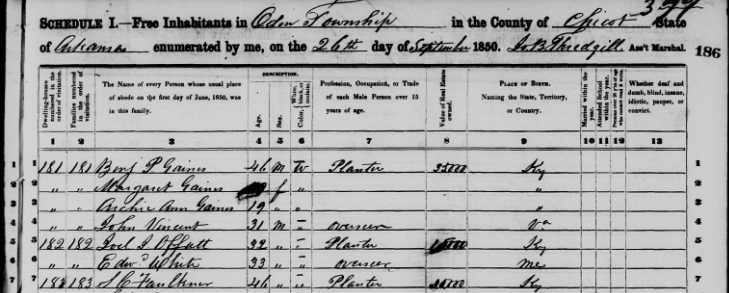 SCHEDULE I.—Free Inhabitants in Oden Township in the County of Chicot State
of Arkansas enumerated by me, on the 26th day of September 1850. Ass't Marshal. 186
DESCRIPTION.
Dwelling-houses numbered in the order of visitation. Families numbered in the order of visitation. The Name of every Person whose usual place of abode on the first day of June, 1850, was in this family. Age. Sex. Color, White, black, or mulatto. Profession, Occupation, or Trade of each Male Person over 15 years of age. Value of Real Estate owned. PLACE OF BIRTH. Naming the State, Territory, or Country. Married within the year. Attended School within the year. Whether deaf and dumb, blind, insane, idiotic, pauper, or convict.
1 2 3 4 5 6 7 8 9 10 11 12 13
1 181 181 Benj P Gaines 46 m W Planter 35000 Ky 1
2 " " Margaret Gaines f " " 2
3 " " Archie Ann Gaines 19 " " " 3
4 " " John Vincent 31 m " overseer Va 4
5 182 182 Joel J Offutt 22 " " Planter Ky 5
6 " " Edwd White 33 " " overseer Me 6
7 183 183 S C Faulkner 46 " " Planter Ky 7